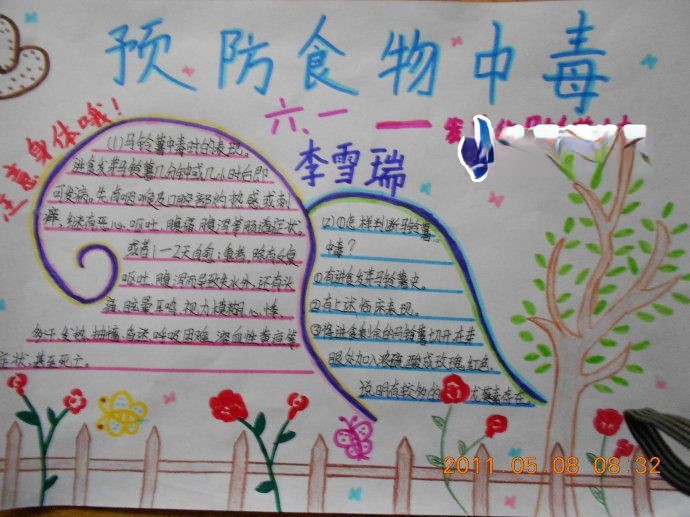 预防食物中毒
六、一
李雪瑞
注意身体哦！
(1)马铃薯中毒时的表现。
进食发芽马铃薯几分钟或几小时后即
可发病。先有咽喉及口腔部灼热感或刺
痒，继有恶心、呕吐、腹痛、腹泻等肠道症状。
或者1-2天自愈；重者，除有反复
呕吐、腹泻而导致失水外，还有头
痛、眩晕、耳鸣、视力模糊、心悸、
多汗、发热、抽搐、昏迷、呼吸困难、溶血性黄疸等
症状，甚至死亡。
(2)①怎样判断马铃薯
中毒？
①有进食发芽马铃薯史。
②有上述临床表现。
③将进食剩余的马铃薯切开，在芽
眼处加入浓硫酸或玫瑰红色，
说明有较多的
龙葵素存在。
2011.05.08 08:32